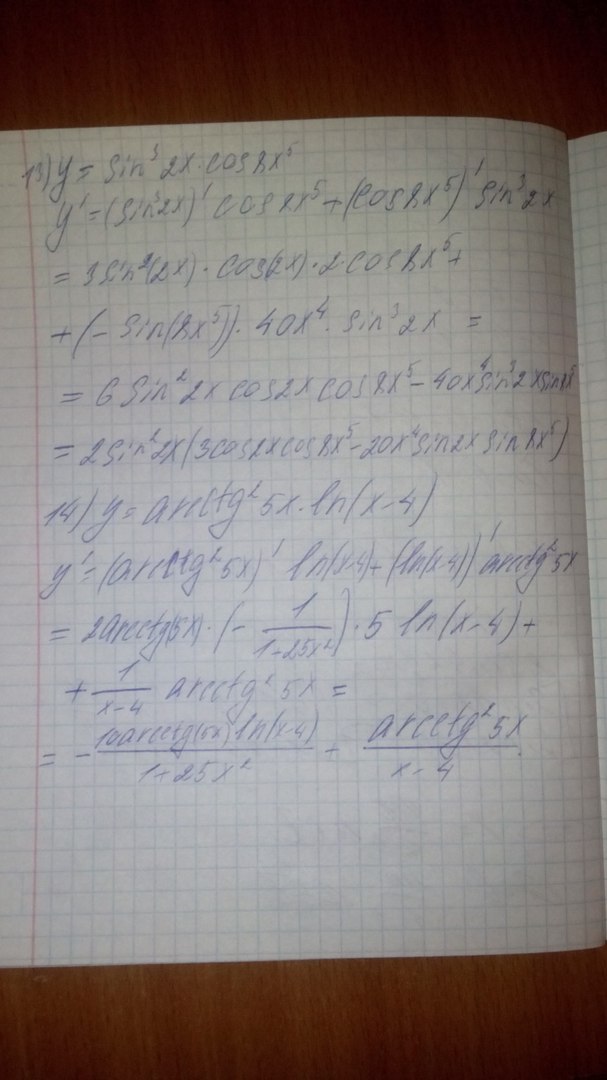 13) y = sin³ 2x · cos 8x⁵
y' = (sin³2x)' cos 8x⁵ + (cos 8x⁵)' sin³ 2x
= 3sin²(2x) · cos(2x) · 2 · cos 8x⁵ +
+ (- sin(8x⁵)) · 40x⁴ · sin³ 2x =
= 6 sin² 2x cos 2x cos 8x⁵ - 40x⁴ sin³ 2x sin 8x⁵
= 2 sin² 2x (3cos2x cos 8x⁵ - 20x⁴ sin2x sin 8x⁵)
14) y = arcctg² 5x · ln(x-4)
y' = (arcctg² 5x)' ln(x-4) + (ln(x-4))' arcctg² 5x
= 2arcctg(5x) · (- 1/(1+25x²)) · 5 ln(x-4) +
+ 1/(x-4) arcctg² 5x =
= - (10arcctg(5x) ln(x-4))/(1+25x²) + (arcctg² 5x)/(x-4)